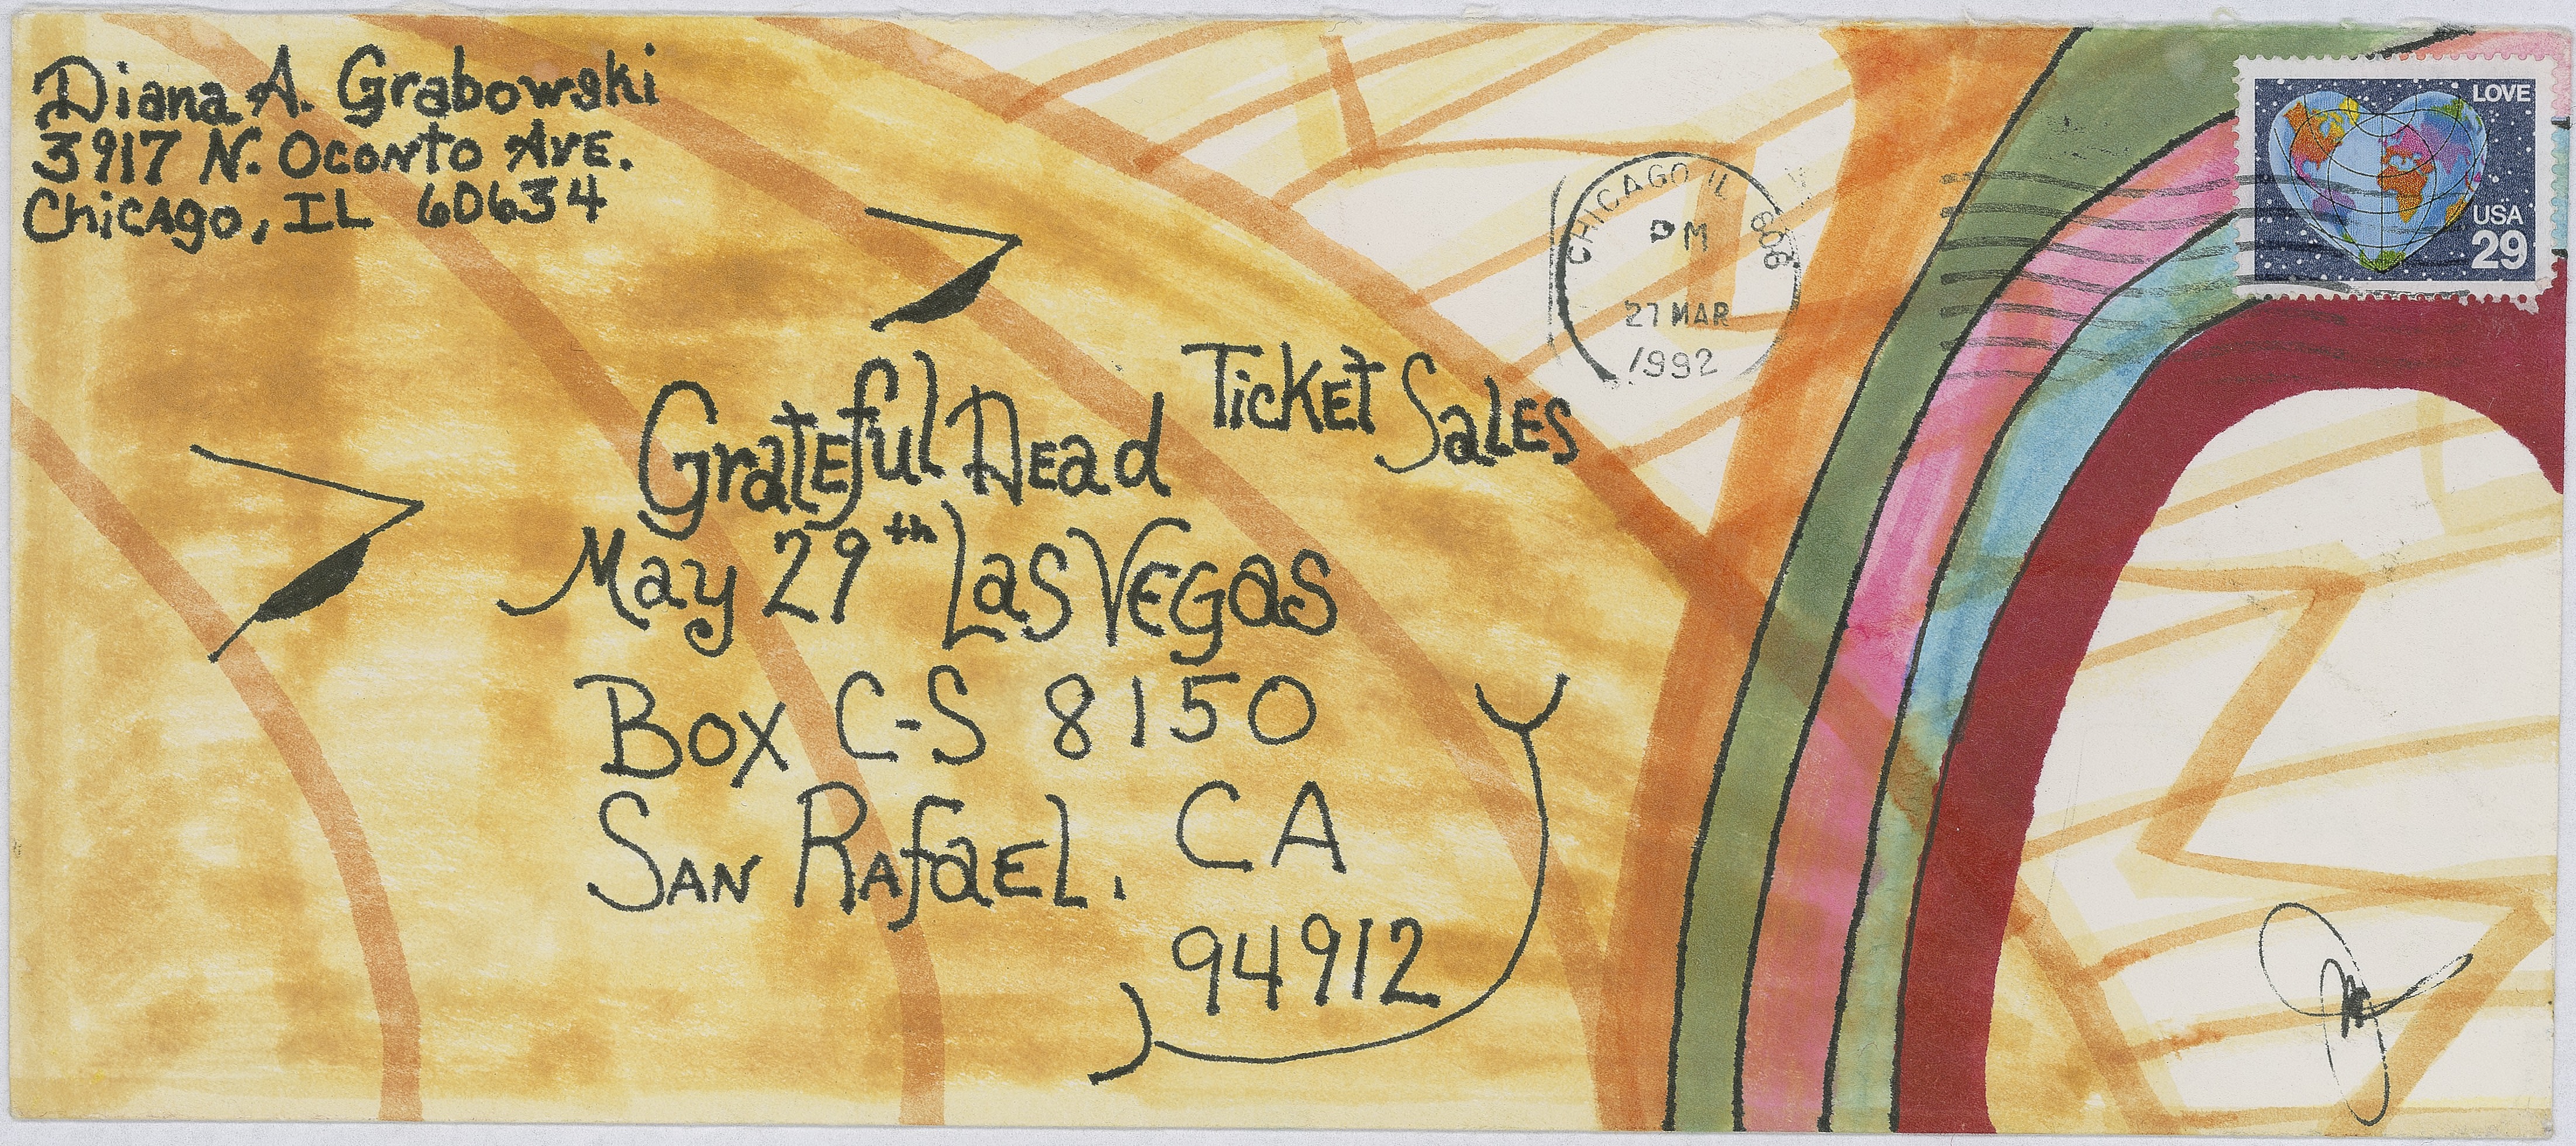 Diana A. Grabowski
3917 N. Oconto Ave.
Chicago, IL 60634
LOVE
USA
29
CHICAGO IL 606
PM
27 MAR
1992
Grateful Dead Ticket Sales
May 29th Las Vegas
Box C-S 8150
San Rafael, CA
94912